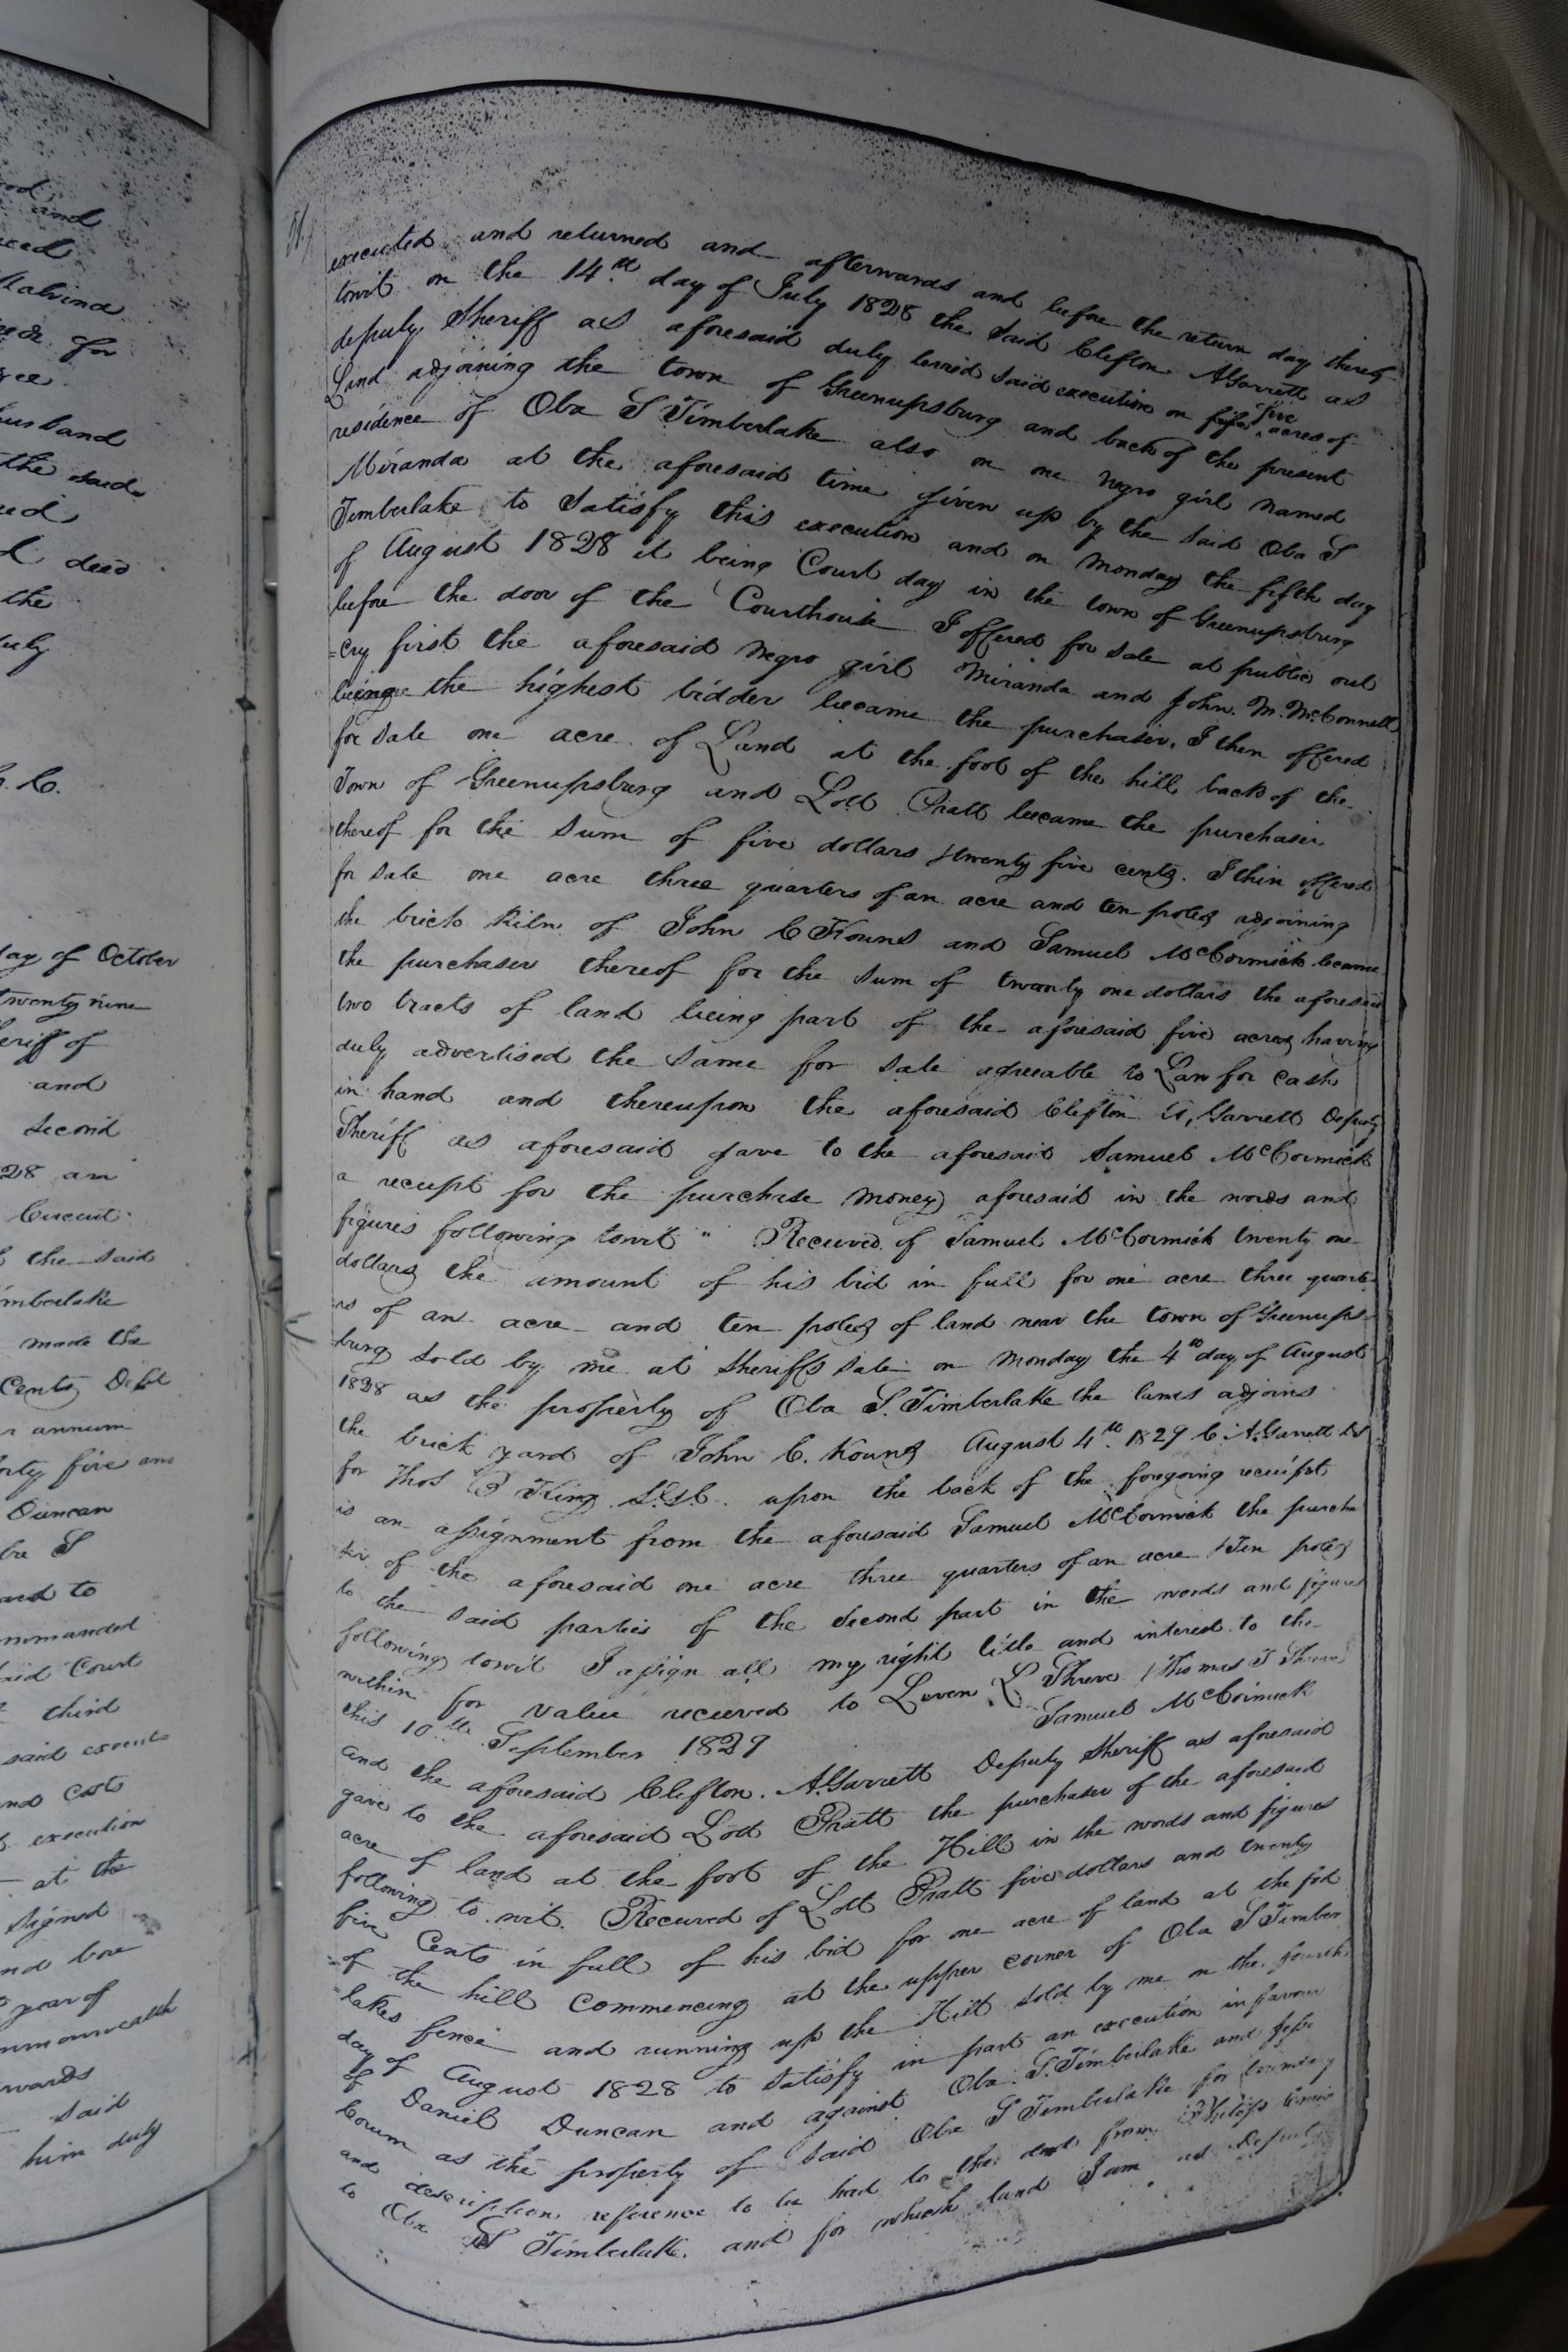 ood
and
Malvina
for
husband
the said
deed
the
day of October
twenty nine
sheriff of
and
Second
28 an
Circuit
the said
Timberlake
made the
Cents Debt
annum
forty five and
Duncan
S
and to
commanded
said Court
third
said execut
and costs
execution
at the
signed
and bore
year of
mmonwealth
wards
said
him duly
executed and returned and afterwards and before the return day thereof
towit on the 14th day of July 1828 the said Clefton A Garrett as
deputy Sheriff as aforesaid duly levied said execution on five acres of
Land adjoining the town of Greenupsburg and back of the present
residence of Oba S Timberlake also on one negro girl named
Miranda at the aforesaid time given up by the said Oba S
Timberlake to Satisfy this execution and on Monday the fifth day
of August 1828 it being Court day in the town of Greenupsburg
before the door of the Courthouse I offered for sale at public out
=cry first the aforesaid negro girl Miranda and John. M. McConnell
being the highest bidder became the purchaser, I then offered
for sale one acre of Land at the foot of the hill back of the
Town of Greenupsburg and Lott Pratt became the purchaser
thereof for the sum of five dollars & twenty five cents. I then offered
for sale one acre three quarters of an acre and ten poles adjoining
the brick kiln of John C Kouns and Samuel McCormick became
the purchaser thereof for the sum of twenty one dollars the aforesaid
two tracts of land being part of the aforesaid five acres having
duly advertised the same for sale agreeable to Law for cash
in hand and thereupon the aforesaid Clefton A, Garrett Deputy
Sheriff as aforesaid gave to the aforesaid Samuel McCormick
a receipt for the purchase money aforesaid in the words and
figures following towit " Received of Samuel McCormick twenty one
dollars the amount of his bid in full for one acre three quart
ers of an acre and ten poles of land near the town of Greenups
burg sold by me at Sheriffs sale on Monday the 4th day of August
1828 as the property of Oba S. Timberlake the lands adjoins
the brick yard of John C. Kouns August 4th 1829 C. A. Garrett DS
for Thos B King S.G.C. upon the back of the foregoing receipt
is an assignment from the aforesaid Samuel McCormick the purcha
ser of the aforesaid one acre three quarters of an acre & Ten poles
to the said parties of the second part in the words and figures
following towit I assign all my right title and interest to the
within for value received to Leven L Shreve & Thomas T Shreve
this 10th September 1829 Samuel McCormick
and the aforesaid Clefton. A. Garrett Deputy Sheriff as aforesaid
gave to the aforesaid Lott Pratt the purchaser of the aforesaid
acre of land at the foot of the Hill in the words and figures
following to wit. Received of Lott Pratt five dollars and twenty
five Cents in full of his bid for one acre of land at the foot
of the hill commencing at the upper corner of Oba S Timber
lakes fence and running up the Hill sold by me on the fourth
day of August 1828 to satisfy in part an execution in favour
of Daniel Duncan and against Oba. S. Timberlake and Jesse
Corum as the property of said Oba S Timberlake for
and description reference to be had to the deed from
to Oba S Timberlake. and for which land I am as Deputy